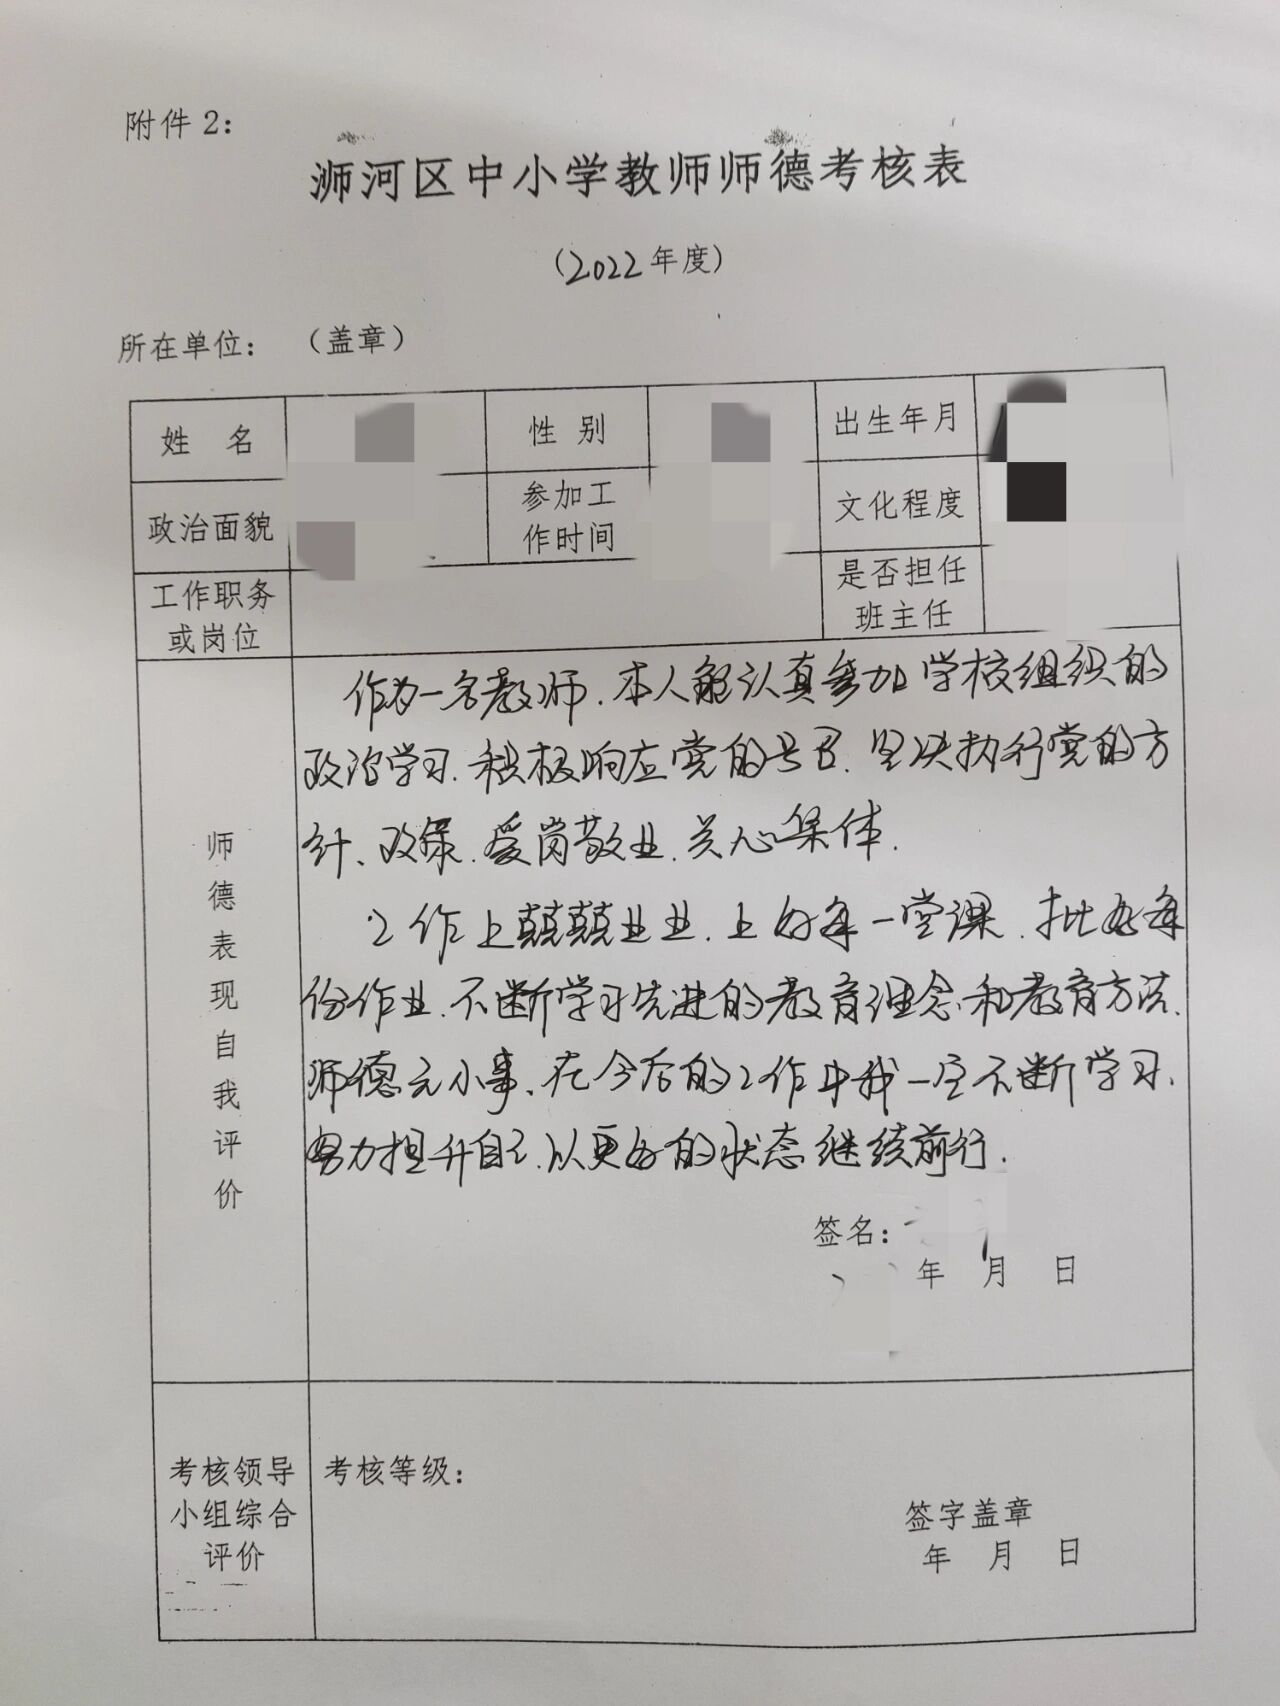 附件2：
浉河区中小学教师师德考核表
(2022年度)
所在单位： （盖章）
姓 名 性 别 出生年月
政治面貌 参加工作时间 文化程度
工作职务或岗位 是否担任班主任
师德表现自我评价
作为一名教师，本人能认真参加学校组织的
政治学习，积极响应党的号召，坚决执行党的方
针、政策，爱岗敬业，关心集体.
工作上兢兢业业，上好每一堂课，批好每
份作业，不断学习先进的教育理念和教育方法，
师德无小事，在今后的工作中我一定不断学习，
努力提升自己，以更好的状态继续前行.
签名：
年 月 日
考核领导小组综合评价
考核等级：
签字盖章
年 月 日